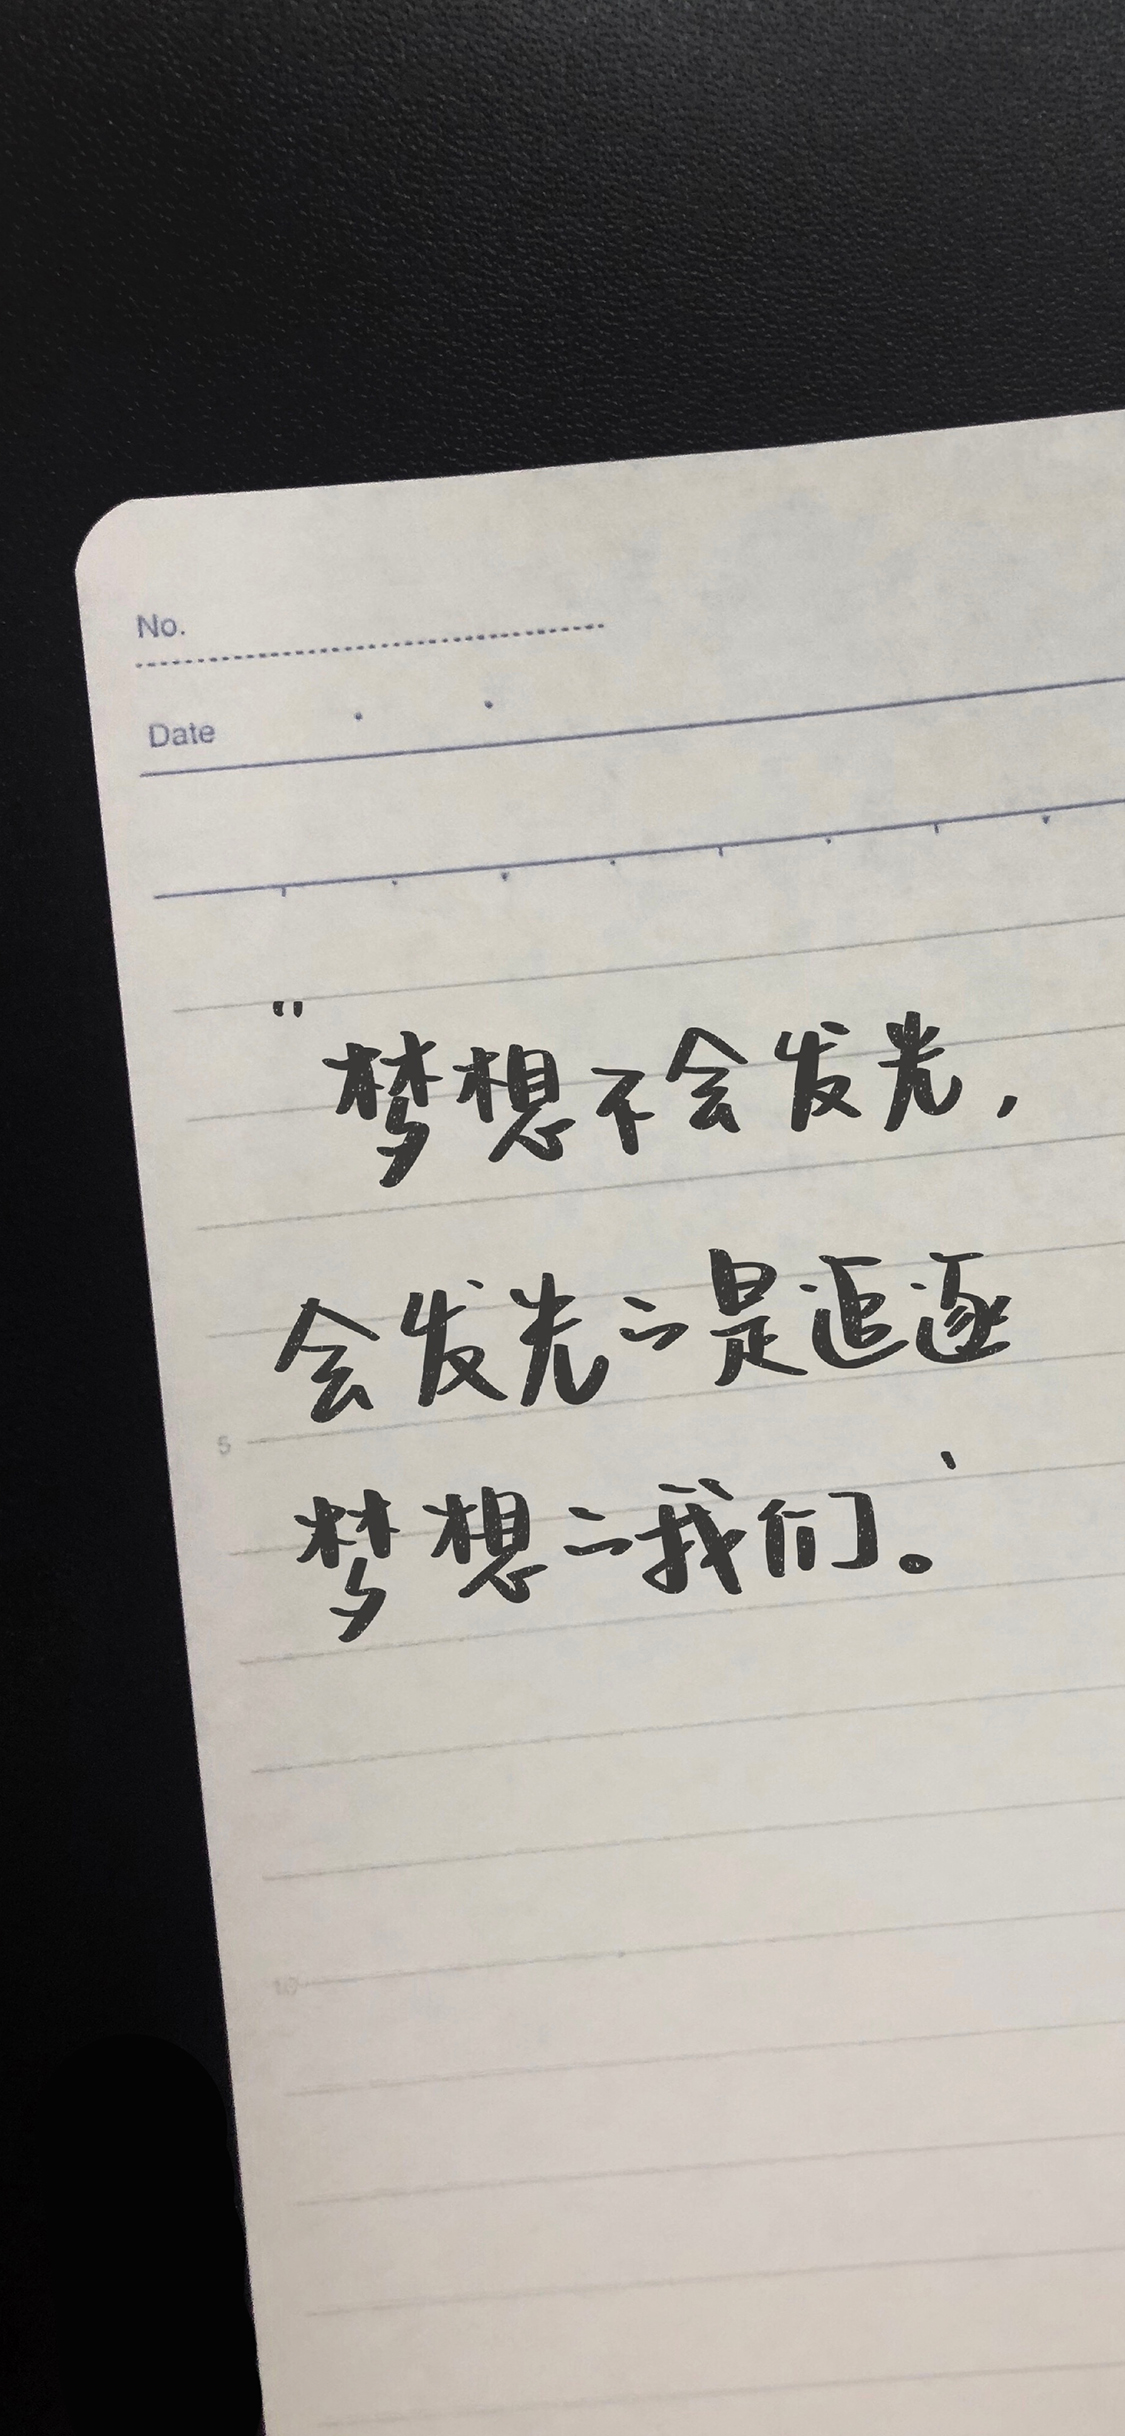 No.
Date
"
梦想不会发光，
会发光的是追逐
5
梦想的我们。'
10